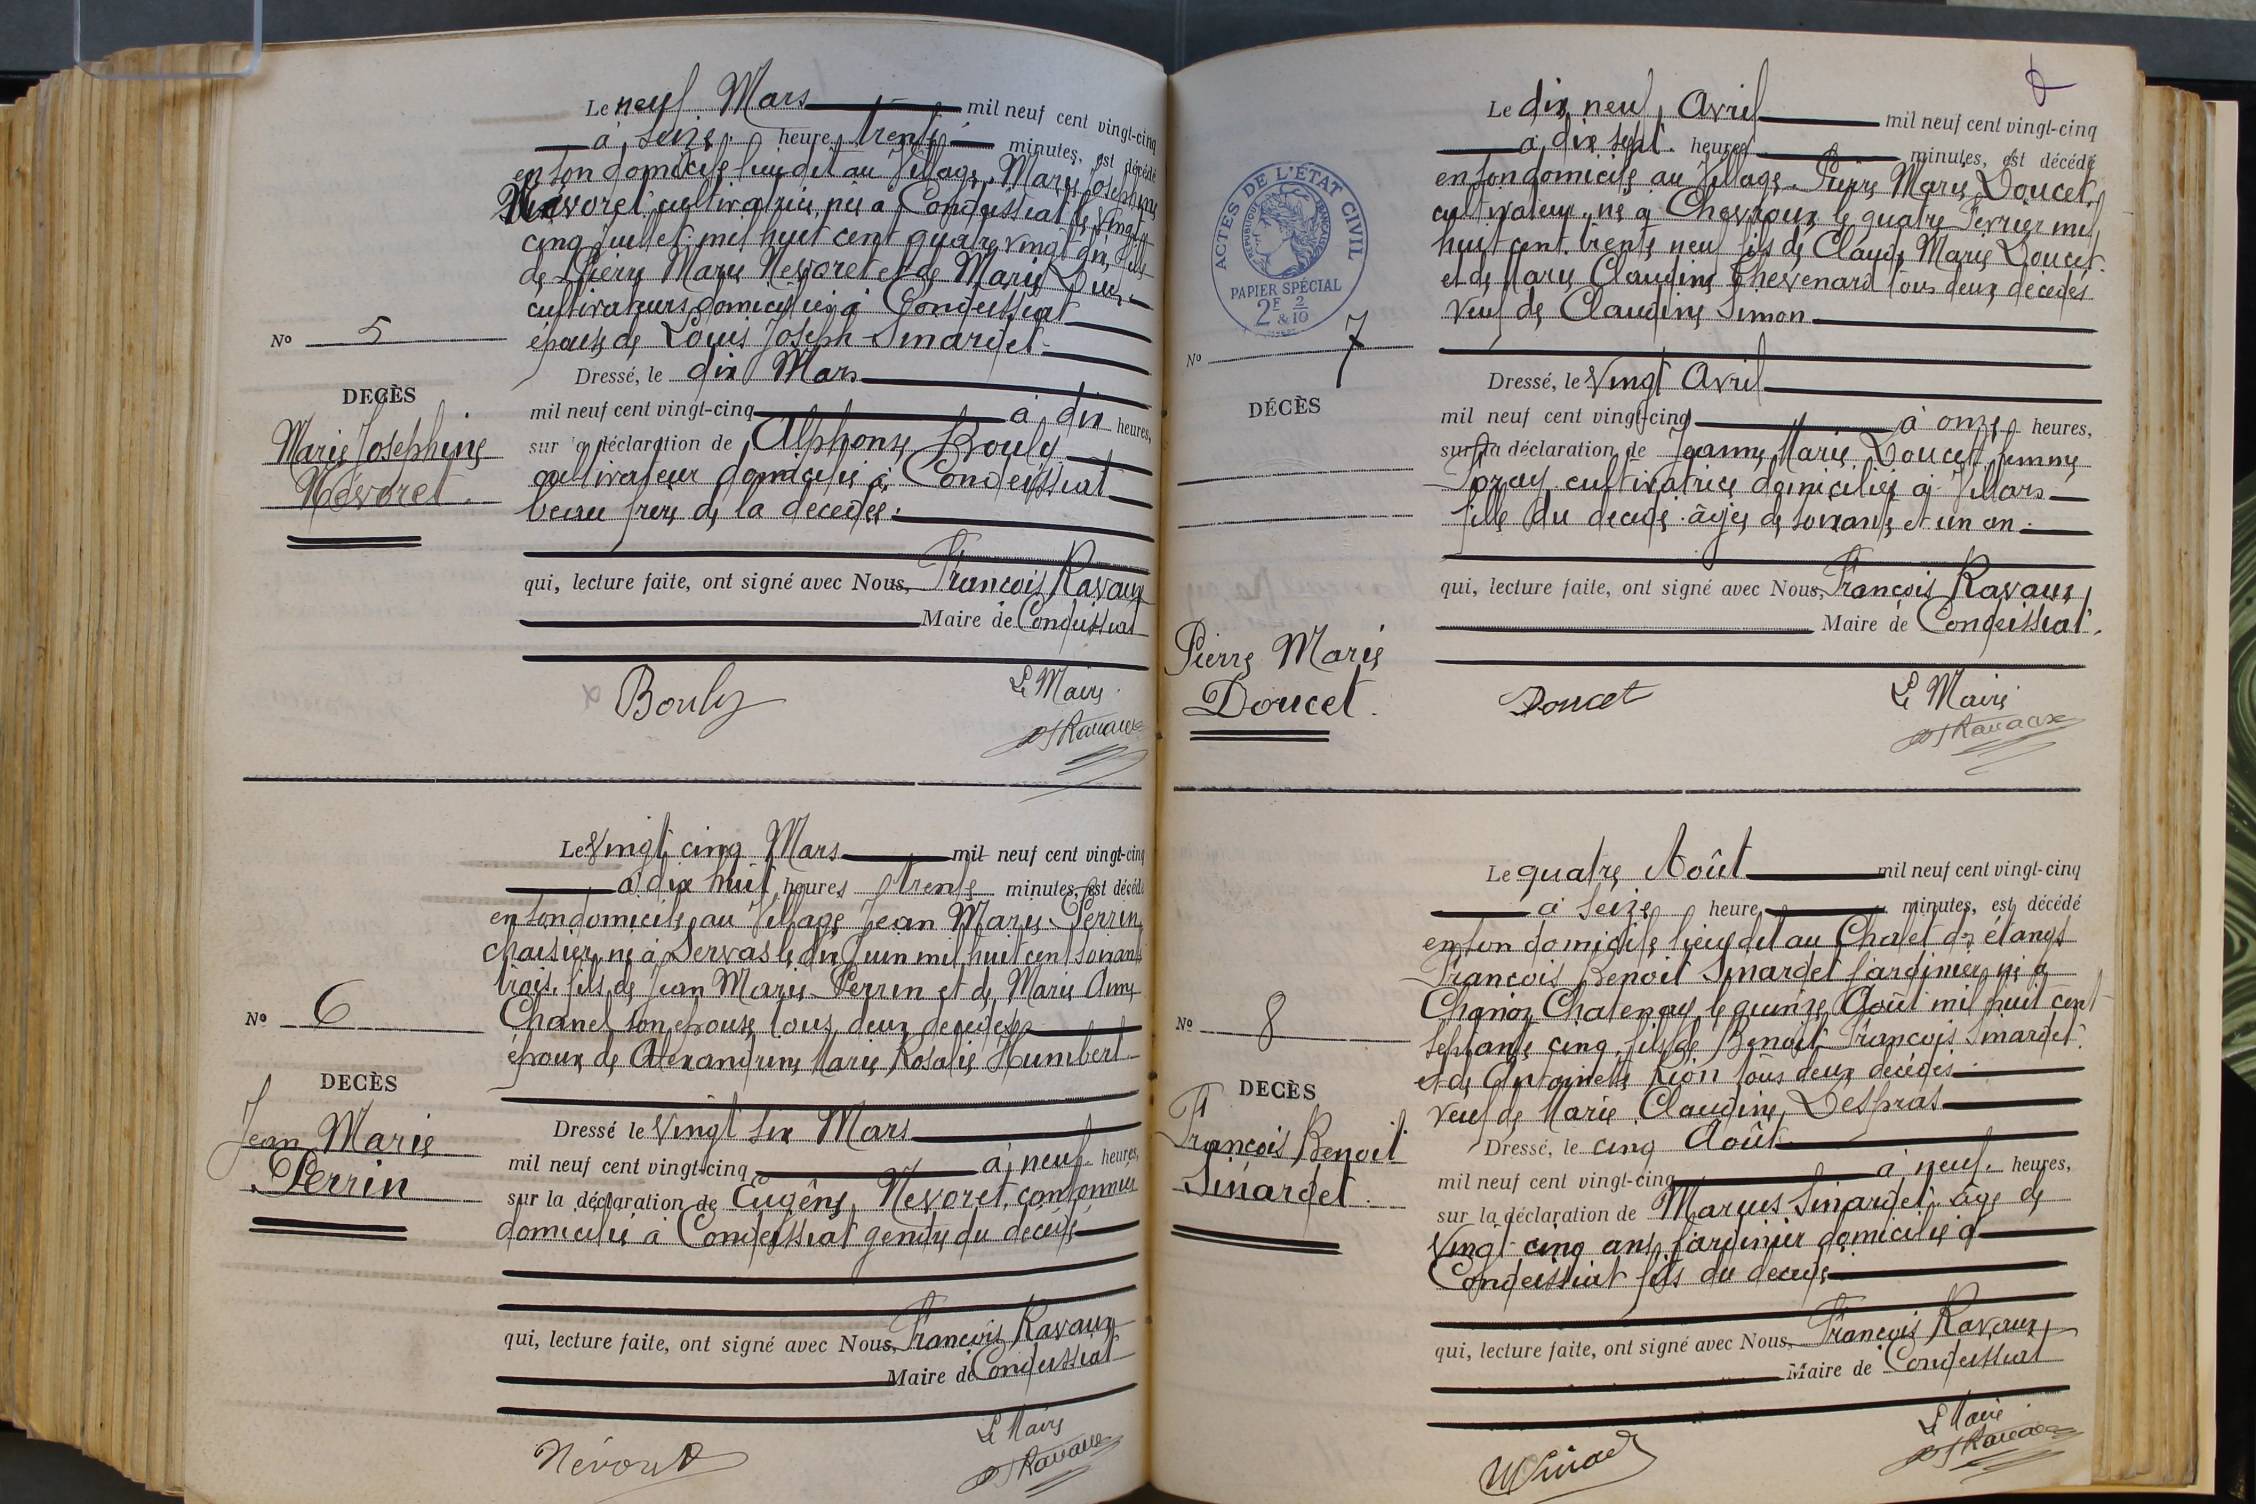 Le neuf Mars mil neuf cent vingt-cinq
à seize heure trente minutes, est décédé
en son domicile lieu dit au Village, Marie Josephine
Nevoret cultivatrice née a Condeissiat le vingt
cinq Juillet mil huit cent quatre vingt dix, fille
de Pierre Marie Nevoret et de Marie
cultivateurs domiciliés à Condeissiat
épouse de Louis Joseph Sinardet
Dressé, le dix Mars
mil neuf cent vingt-cinq à dix heures,
sur la déclaration de Alphonse Bouly
cultivateur domicilié à Condeissiat
beau frère de la décédée.
qui, lecture faite, ont signé avec Nous, François Ravaux
Maire de Condeissiat
Bouly
Le Maire
F Ravaux
No 5
DECÈS
Marie Josephine
Nevoret
Le vingt cinq Mars mil neuf cent vingt-cinq
à dix huit heures trente minutes, est décédé
en son domicile au Village Jean Marie Perrin
chaisier né à Servas le dix Juin mil huit cent soixante
trois, fils de Jean Marie Perrin et de Marie Anne
Chanel son épouse tous deux décédés
époux de Alexandrine Marie Rosalie Humbert
Dressé le vingt six Mars
mil neuf cent vingt-cinq à neuf heures,
sur la déclaration de Eugène Nevoret, cantonnier
domicilié à Condeissiat gendre du décédé
qui, lecture faite, ont signé avec Nous, François Ravaux
Maire de Condeissiat
Névoret
Le Maire
F Ravaux
No 6
DECÈS
Jean Marie
Perrin
ACTES DE L'ÉTAT CIVIL
RÉPUBLIQUE FRANÇAISE
PAPIER SPÉCIAL
2F & 2/10
Le dix neuf Avril mil neuf cent vingt-cinq
à dix sept heures minutes, est décédé
en son domicile au Village Pierre Marie Doucet,
cultivateur, né a Chevroux le quatre Fevrier mil
huit cent trente neuf fils de Claude Marie Doucet
et de Marie Claudine Thevenard tous deux décédés
veuf de Claudine Simon
Dressé, le vingt Avril
mil neuf cent vingt-cinq à onze heures,
sur la déclaration de Jeanne Marie Doucet, femme
cultivatrice domiciliée a Villars
fille du décédé âgée de soixante et un an.
qui, lecture faite, ont signé avec Nous, François Ravaux,
Maire de Condeissiat.
Doucet
Le Maire
F Ravaux
No 7
DÉCÈS
Pierre Marie
Doucet.
Le quatre Août mil neuf cent vingt-cinq
à seize heure minutes, est décédé
en son domicile lieu dit au Chalet des étangs
François Benoit Sinardet Jardinier né a
Chanoz Chatenay le quinze Août mil huit cent
septante cinq, fils de Benoit François Sinardet
et de Antoinette Rion tous deux décédés
veuf de Marie Claudine Despras
Dressé, le cinq Août
mil neuf cent vingt-cinq à neuf heures,
sur la déclaration de Marius Sinardet âgé de
vingt cinq ans, Jardinier domicilié à
Condeissiat fils du décédé
qui, lecture faite, ont signé avec Nous, François Ravaux,
Maire de Condeissiat
Le Maire
F Ravaux
No 8
DECÈS
François Benoit
Sinardet.